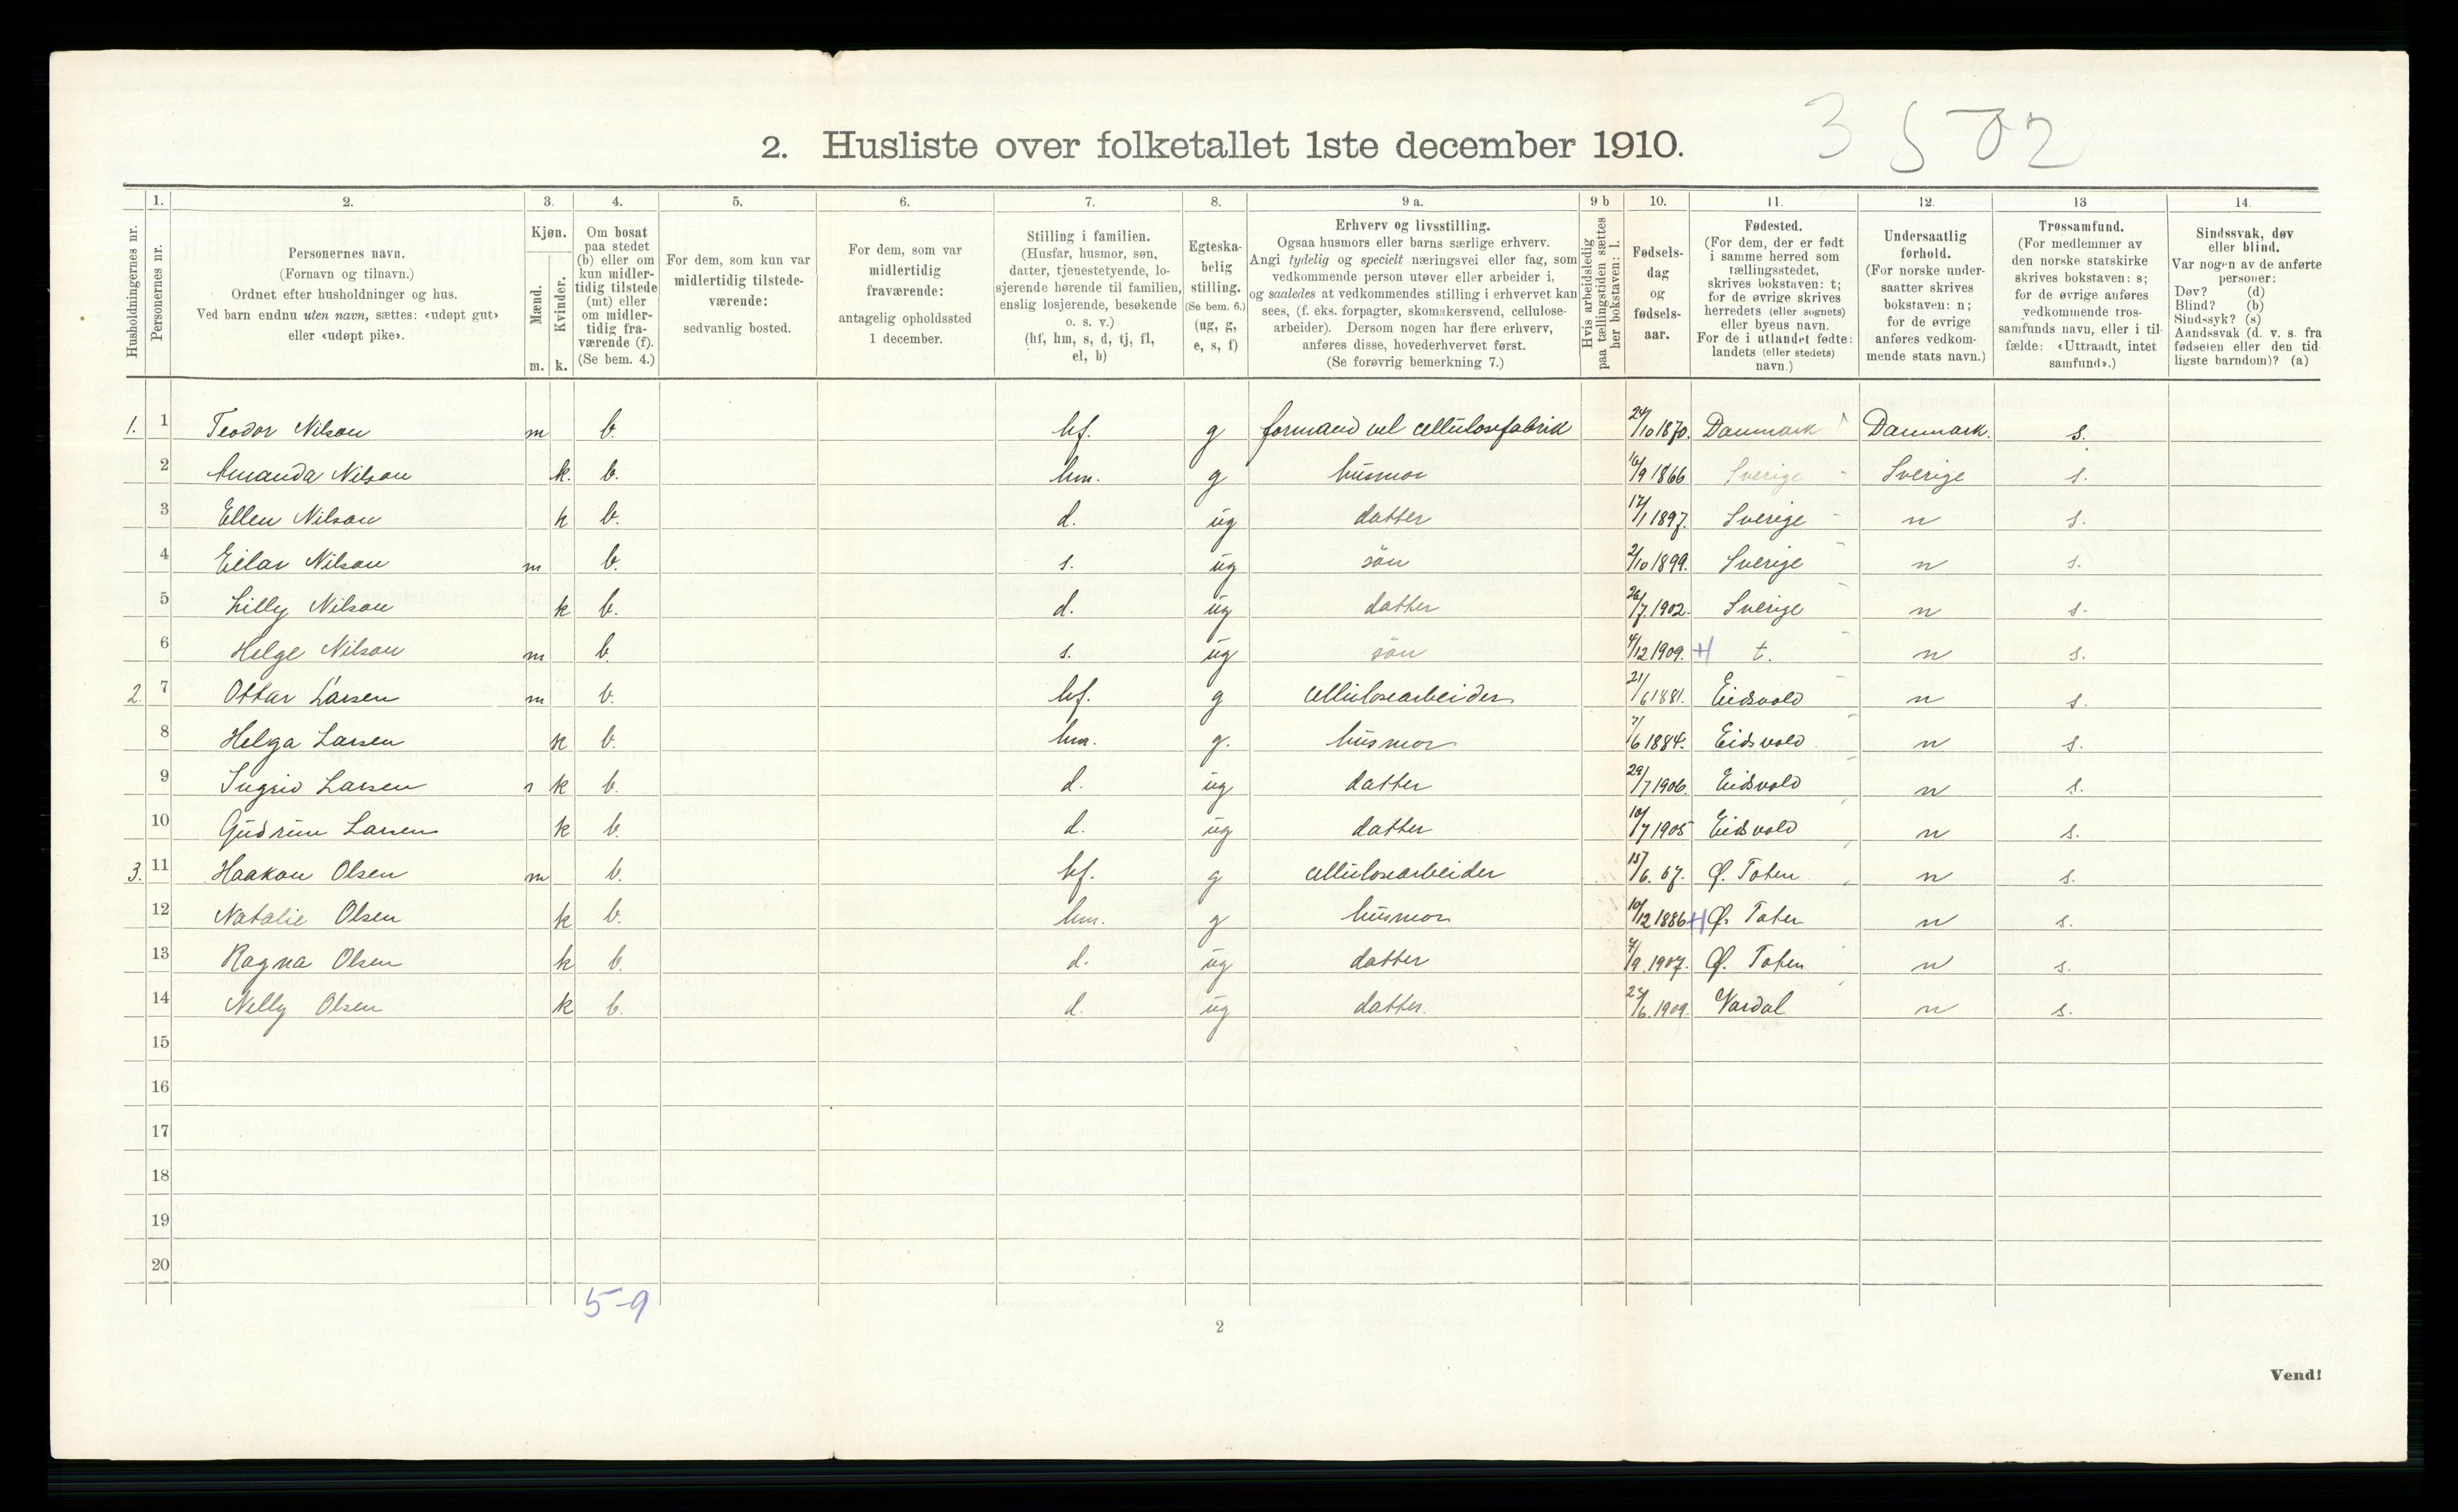 3 502
2. Husliste over folketallet 1ste december 1910.
1. 2. 3. 4. 5. 6. 7. 8. 9 a. 9 b 10. 11. 12. 13 14
Husholdningernes nr.
Personernes nr.
Personernes navn.
(Fornavn og tilnavn.)
Ordnet efter husholdninger og hus.
Ved barn endnu uten navn, sættes: «udøpt gut»
eller «udøpt pike».
Kjøn.
Mænd.
Kvinder.
m. k.
Om bosat
paa stedet
(b) eller om
kun midler-
tidig tilstede
(mt) eller
om midler-
tidig fra-
værende (f).
(Se bem. 4.)
For dem, som kun var
midlertidig tilstede-
værende:
sedvanlig bosted.
For dem, som var
midlertidig
fraværende:
antagelig opholdssted
1 december.
Stilling i familien.
(Husfar, husmor, søn,
datter, tjenestetyende, lo-
sjerende hørende til familien,
enslig losjerende, besøkende
o. s. v.)
(hf, hm, s, d, tj, fl,
el, b)
Egteska-
belig
stilling.
(Se bem. 6.)
(ug, g,
e, s, f)
Erhverv og livsstilling.
Ogsaa husmors eller barns særlige erhverv.
Angi tydelig og specielt næringsvei eller fag, som
vedkommende person utøver eller arbeider i,
og saaledes at vedkommendes stilling i erhvervet kan
sees, (f. eks. forpagter, skomakersvend, cellulose-
arbeider). Dersom nogen har flere erhverv,
anføres disse, hovederhvervet først.
(Se forøvrig bemerkning 7.)
Hvis arbeidsledig
paa tællingstiden sættes
her bokstaven: l.
Fødsels-
dag
og
fødsels-
aar.
Fødested.
(For dem, der er født
i samme herred som
tællingsstedet,
skrives bokstaven: t;
for de øvrige skrives
herredets (eller sognets)
eller byens navn.
For de i utlandet fødte:
landets (eller stedets)
navn.)
Undersaatlig
forhold.
(For norske under-
saatter skrives
bokstaven: n;
for de øvrige
anføres vedkom-
mende stats navn.)
Trossamfund.
(For medlemmer av
den norske statskirke
skrives bokstaven: s;
for de øvrige anføres
vedkommende tros-
samfunds navn, eller i til-
fælde: «Uttraadt, intet
samfund».)
Sindssvak, døv
eller blind.
Var nogen av de anførte
personer:
Døv? (d)
Blind? (b)
Sindssyk? (s)
Aandssvak (d. v. s. fra
fødselen eller den tid-
ligste barndom)? (a)
1. 1 Teodor Nilson m b. hf. g formand vel cellulosefabrik 24/10 1870. Danmark Danmark. s.
2 Amanda Nilson k. b. hm. g husmor 16/9 1866 Sverige Sverige s.
3 Ellen Nilson k b. d. ug datter 17/1 1897. Sverige n s.
4 Eilar Nilson m b. s. ug sön 2/10 1899. Sverige n s.
5 Lilly Nilson k b. d. ug datter 26/7. 1902. Sverige n s.
6 Helge Nilson m b. s. ug sön 4/12 1909. t. n s.
2. 7 Ottar Larsen m b. hf. g cellulosearbeider 21/6 1881. Eidsvold n s.
8 Helga Larsen k b. hm. g. husmor 7/6 1884. Eidsvold n s.
9 Ingrid Larsen k b. d. ug datter 29/7 1906. Eidsvold n s.
10 Gudrun Larsen k b. d. ug datter 10/7 1905 Eidsvold n s.
3. 11 Haakon Olsen m b. hf. g cellulosearbeider 15/6. 67. Ø. Toten n s.
12 Natalie Olsen k b. hm. g husmor 10/12 1886 Ø. Toten n s.
13 Ragna Olsen k b. d. ug datter 7/9. 1907. Ø. Toten n s.
14 Nelly Olsen k b. d. ug datter. 24/6. 1909. Vardal n s.
15
16
17
18
19
20
5-9
2
Vend!